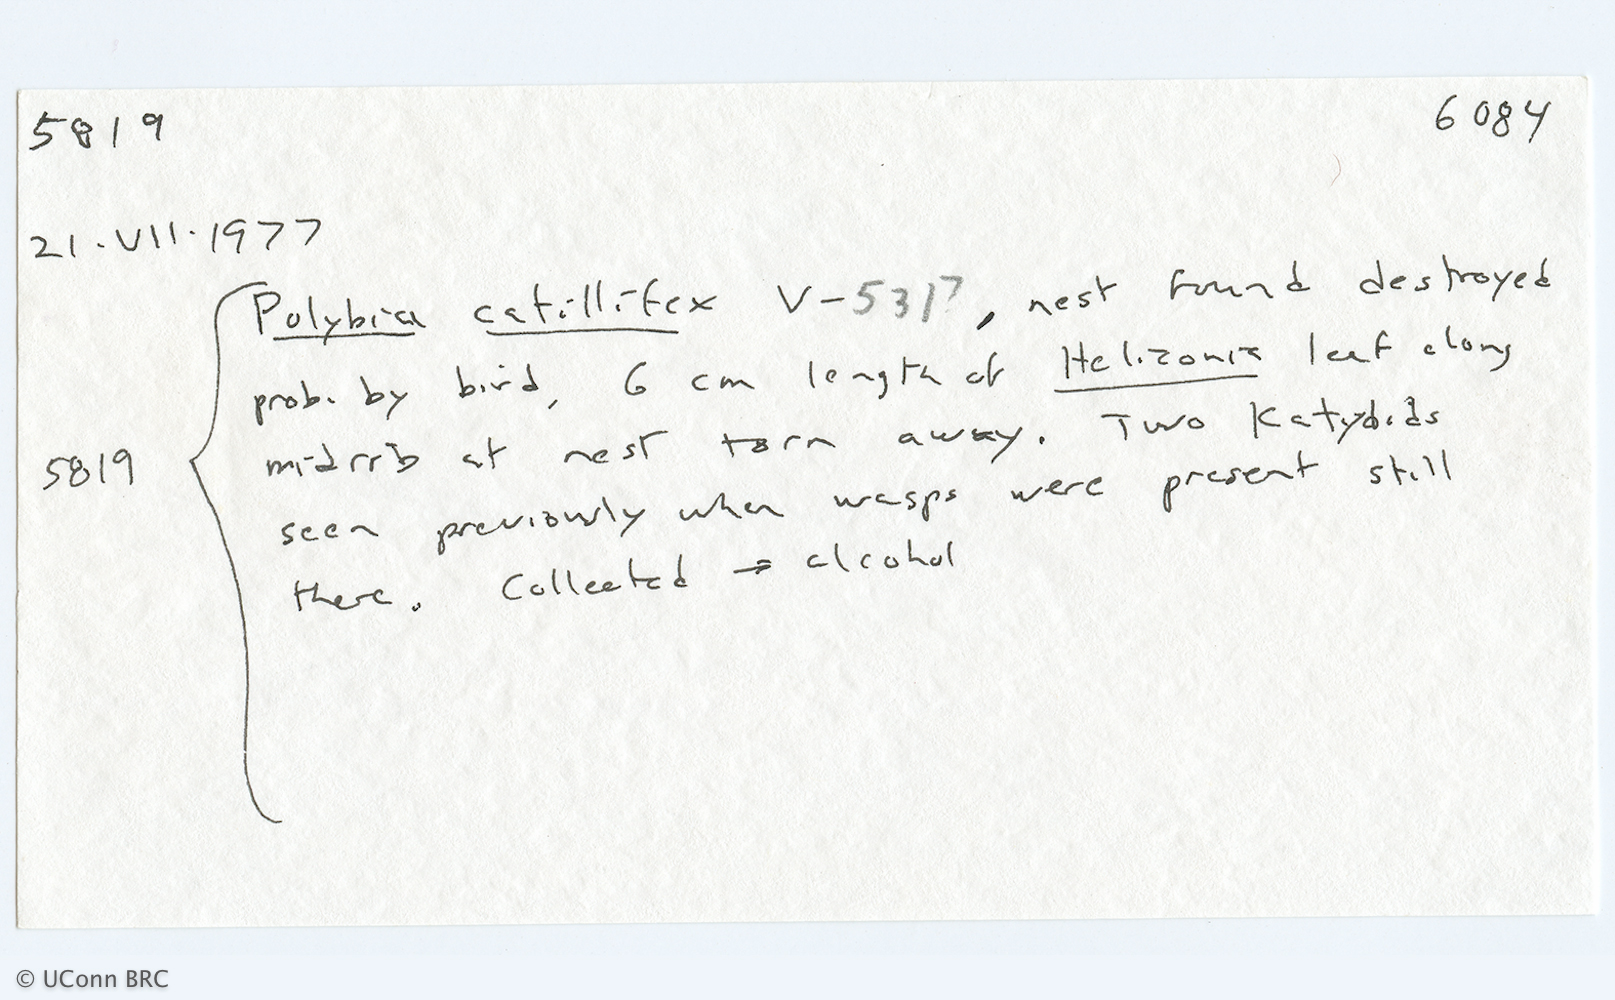 5819 6084
21.VII.1977
Polybia catillifex V-5317, nest found destroyed
prob. by bird, 6 cm length of Heliconia leaf along
5819 midrib at nest torn away. Two Katydids
seen previously when wasps were present still
there. Collected → alcohol
© UConn BRC